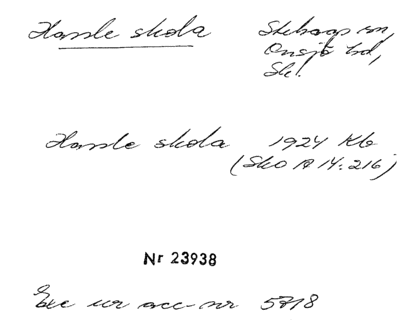 Hassle skola
Stehags sn,
Onsjö hd,
Sk.
Hassle skola 1924 Kb
(SkO A 14:216)
Nr 23938
Exc ur acc-nr 5718